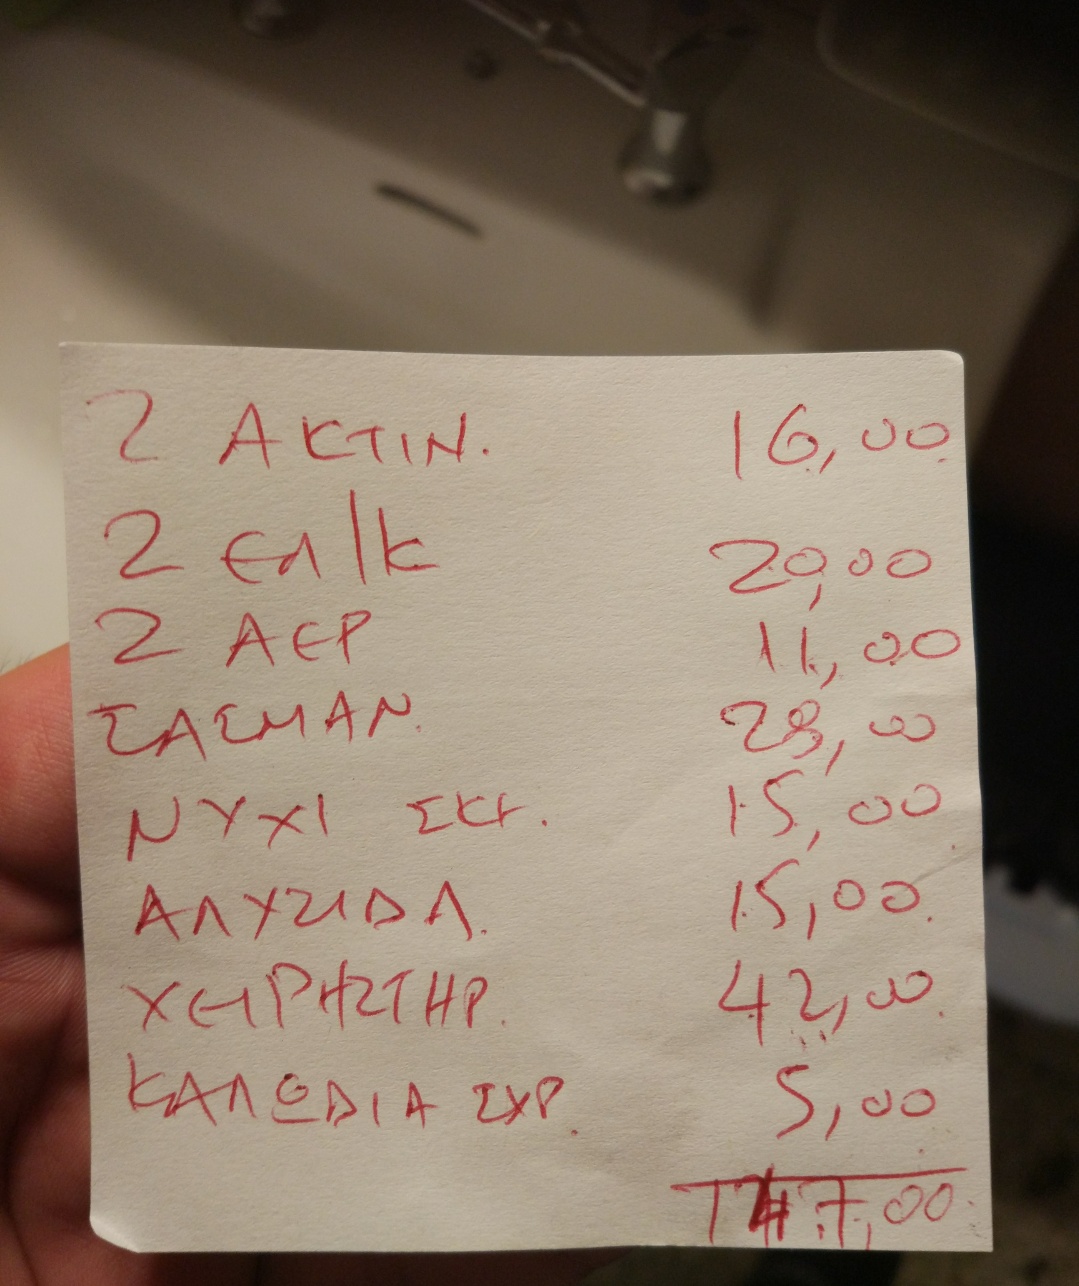 2 ΑΚΤΙΝ. 16,00
2 ΕΛ/Κ 20,00
2 ΑΕΡ 11,00
ΣΑΣΜΑΝ. 28,00
ΝΥΧΙ ΣΚΕ. 15,00
ΑΛΥΣΙΔΑ. 15,00
ΧΕΙΡΗΣΤΗΡ. 42,00
ΚΑΛΩΔΙΑ ΣΥΡ. 5,00
147,00